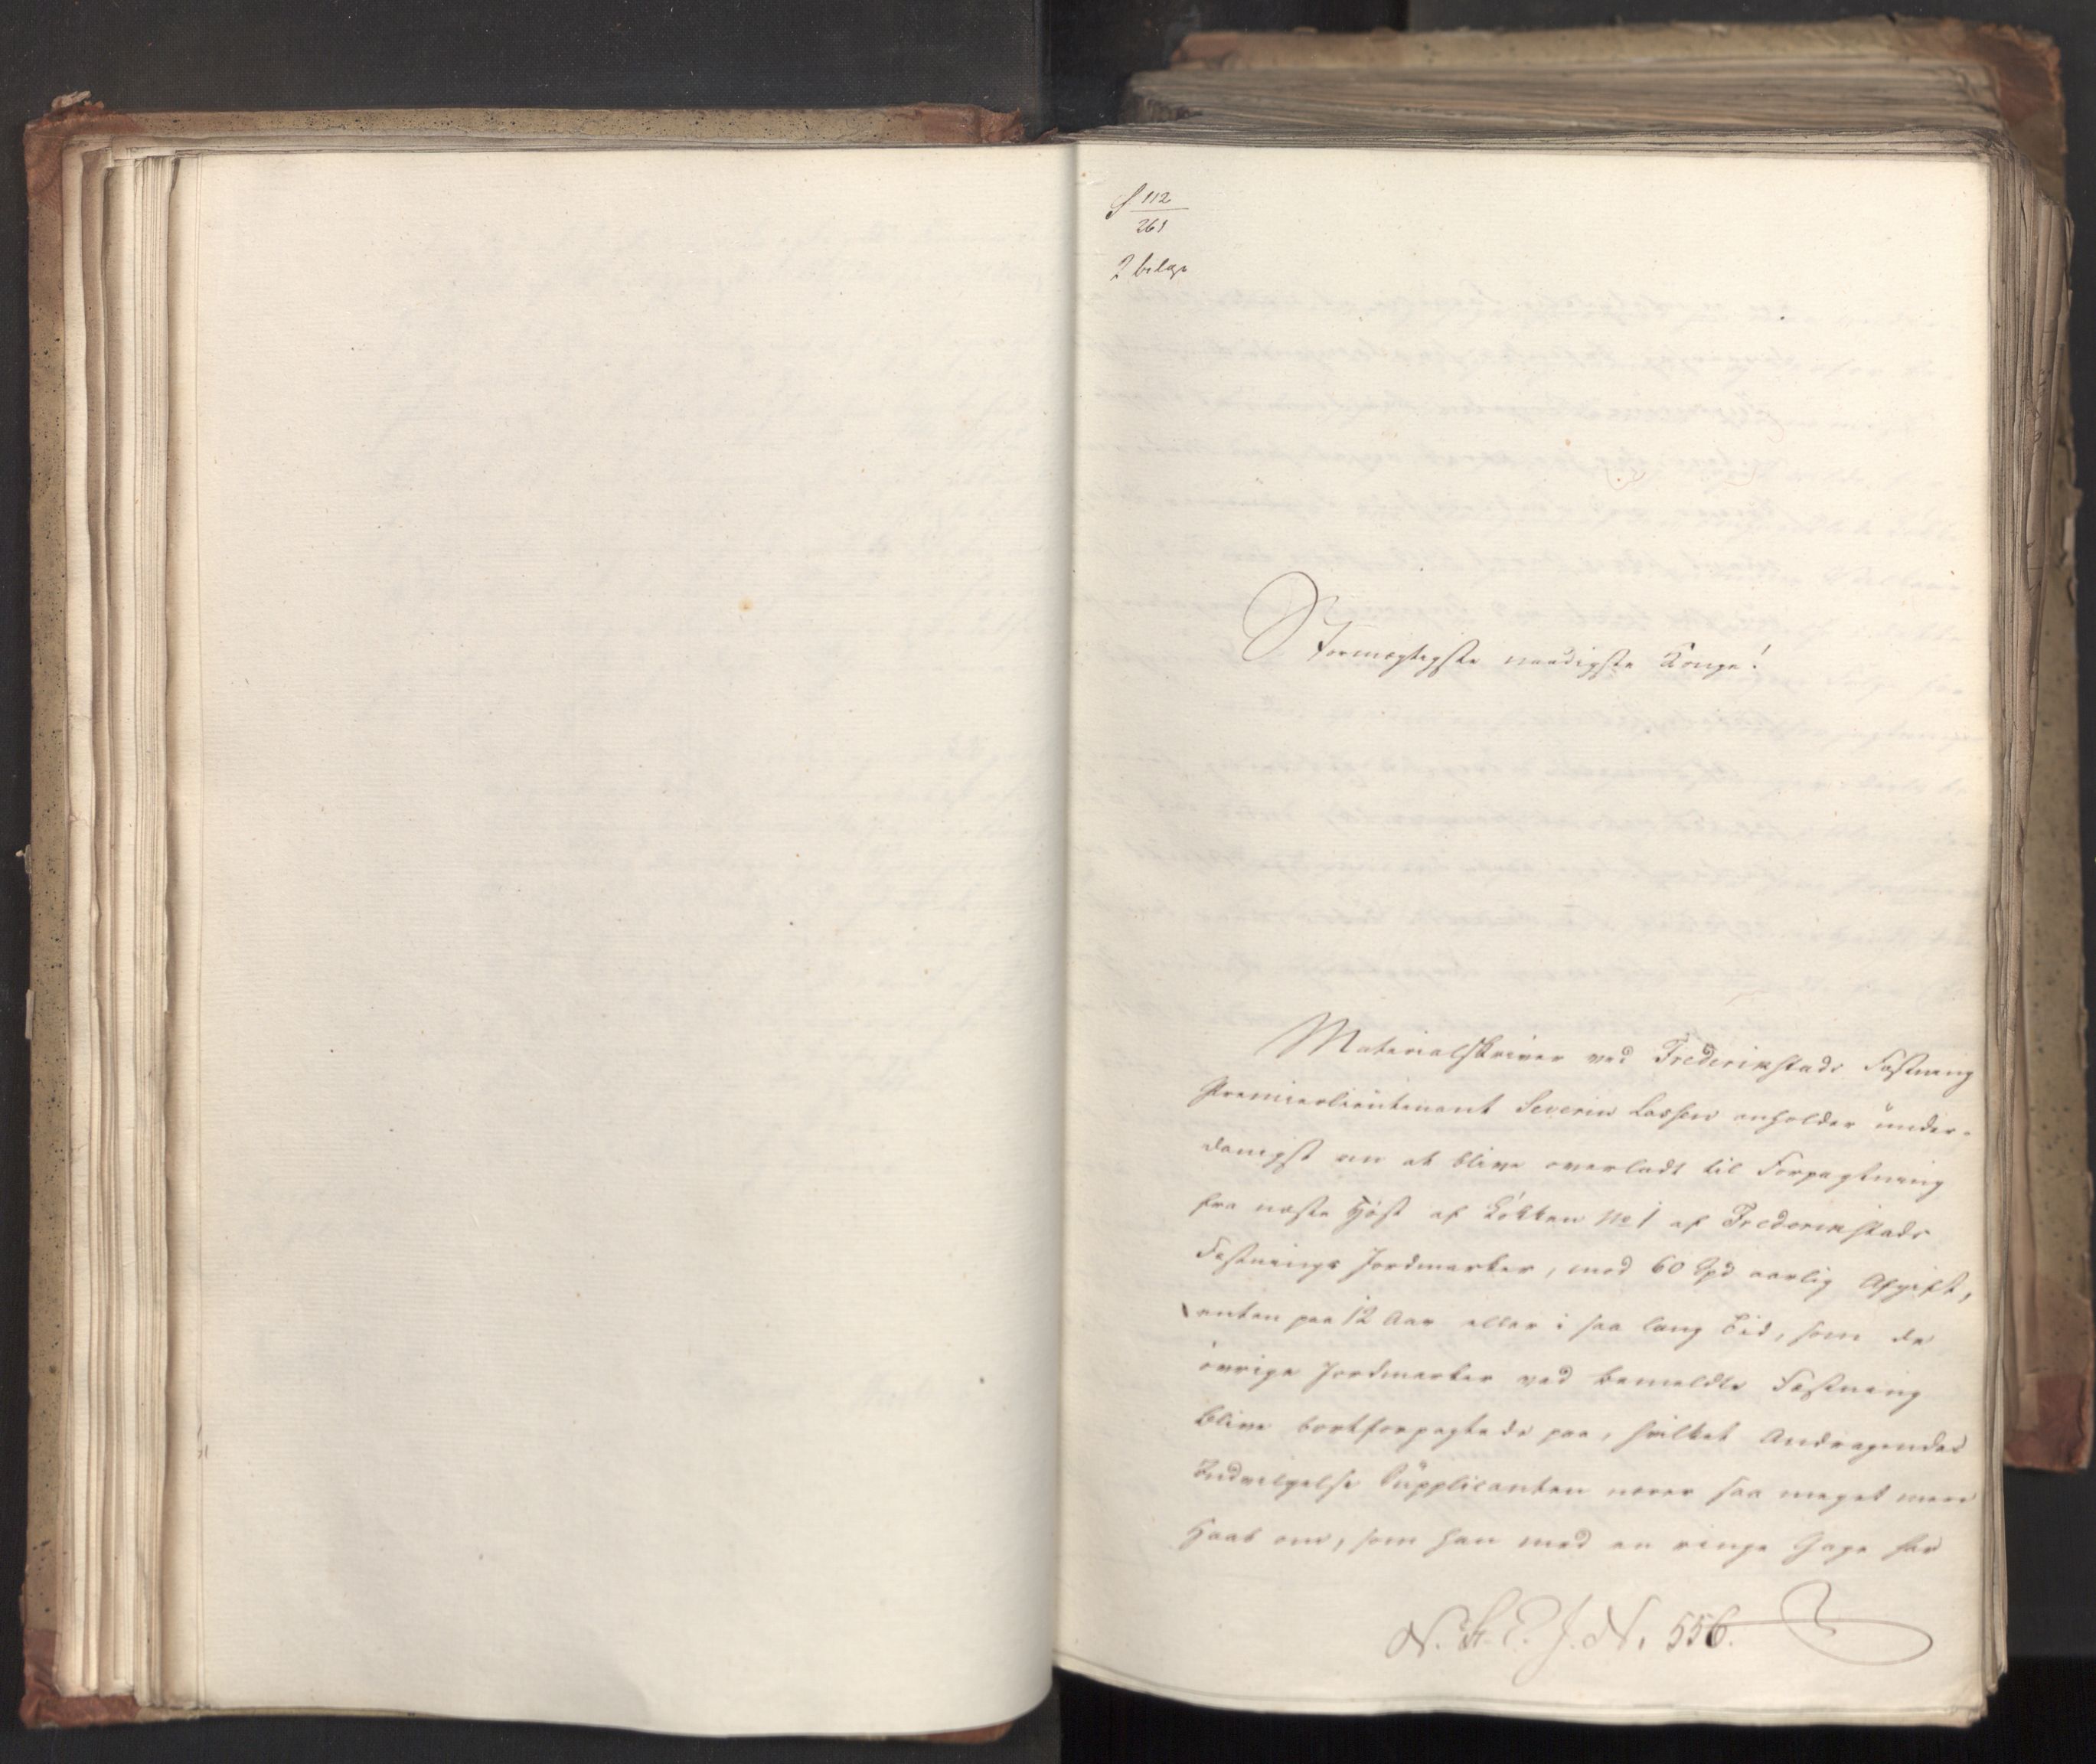 S 112
261
2 bilage
Stormægtigste naadigste Konge!
Materialskriver ved Frederikstads Fæstning
Premierlieutenant Severin Lassen anholder under-
danigst om at blive overladt til Forpagtning
fra næste Høst af Løkken No 1 af Frederikstads
Fæstnings Jordmarker, mod 60 Spd aarlig Afgift,
enten paa 12 Aar eller i saa lang Tid, som de
øvrige Jordmarker ved bemeldte Fæstning
blive bortforpagtede paa, hvilket Andragendes
Indvilgelse Supplicanten nærer saa meget mere
Haab om, som han med en ringe Gage har
N. St. E. J. N. 556.